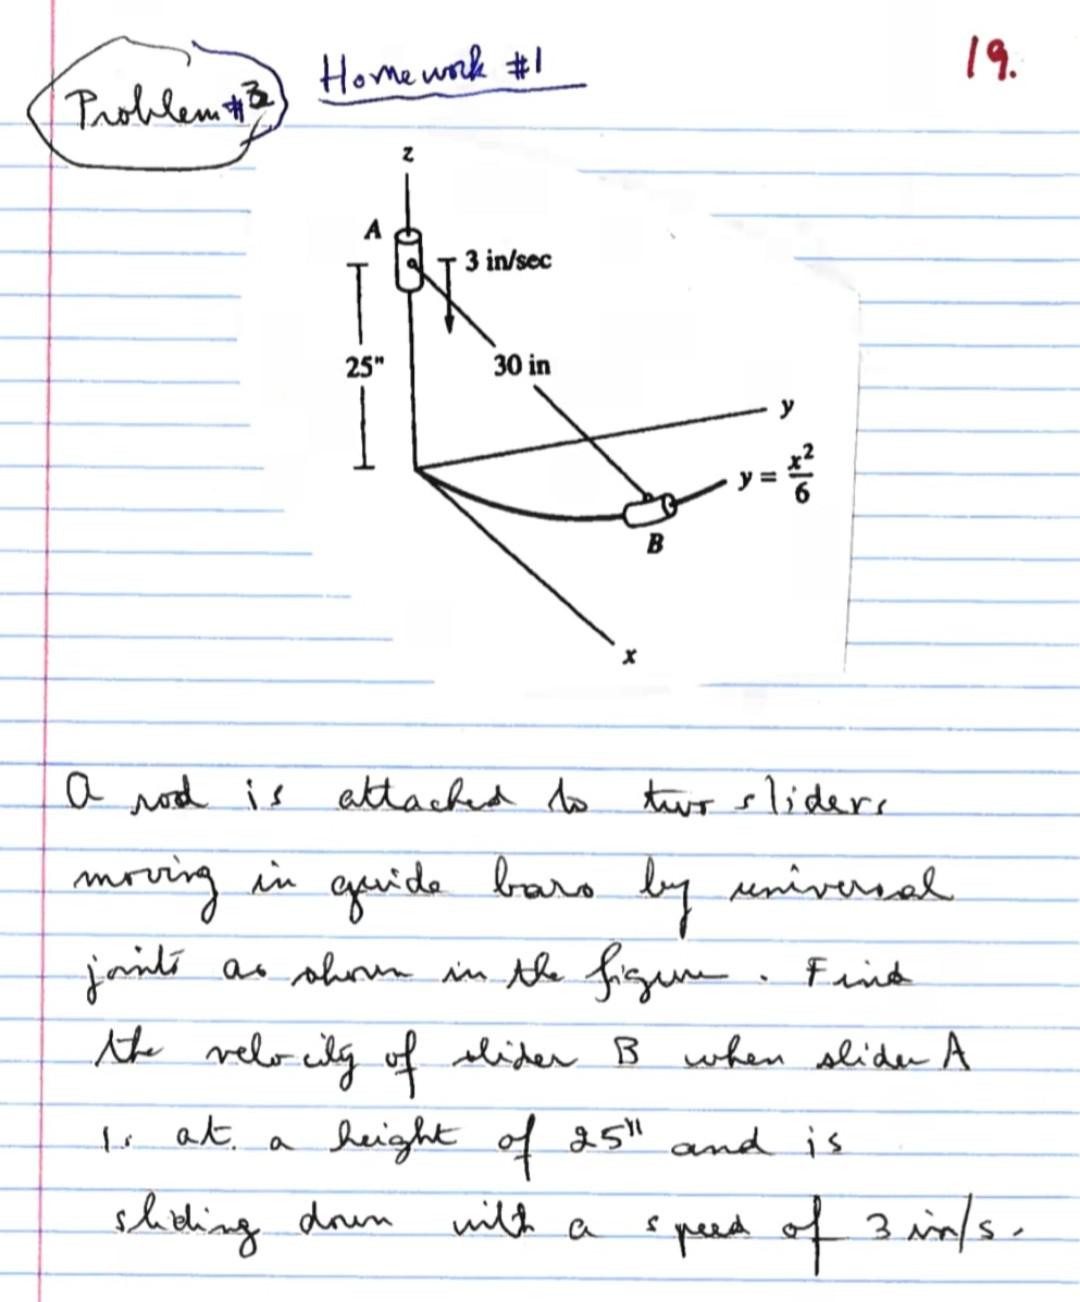 Homework #1
19.
Problem #3
z
A
3 in/sec
25"
30 in
y
y = x²/6
B
x
A rod is attached to two sliders
moving in guide bars by universal
joints as shown in the figure. Find
the velocity of slider B when slider A
is at a height of 25" and is
sliding down with a speed of 3 in/s.